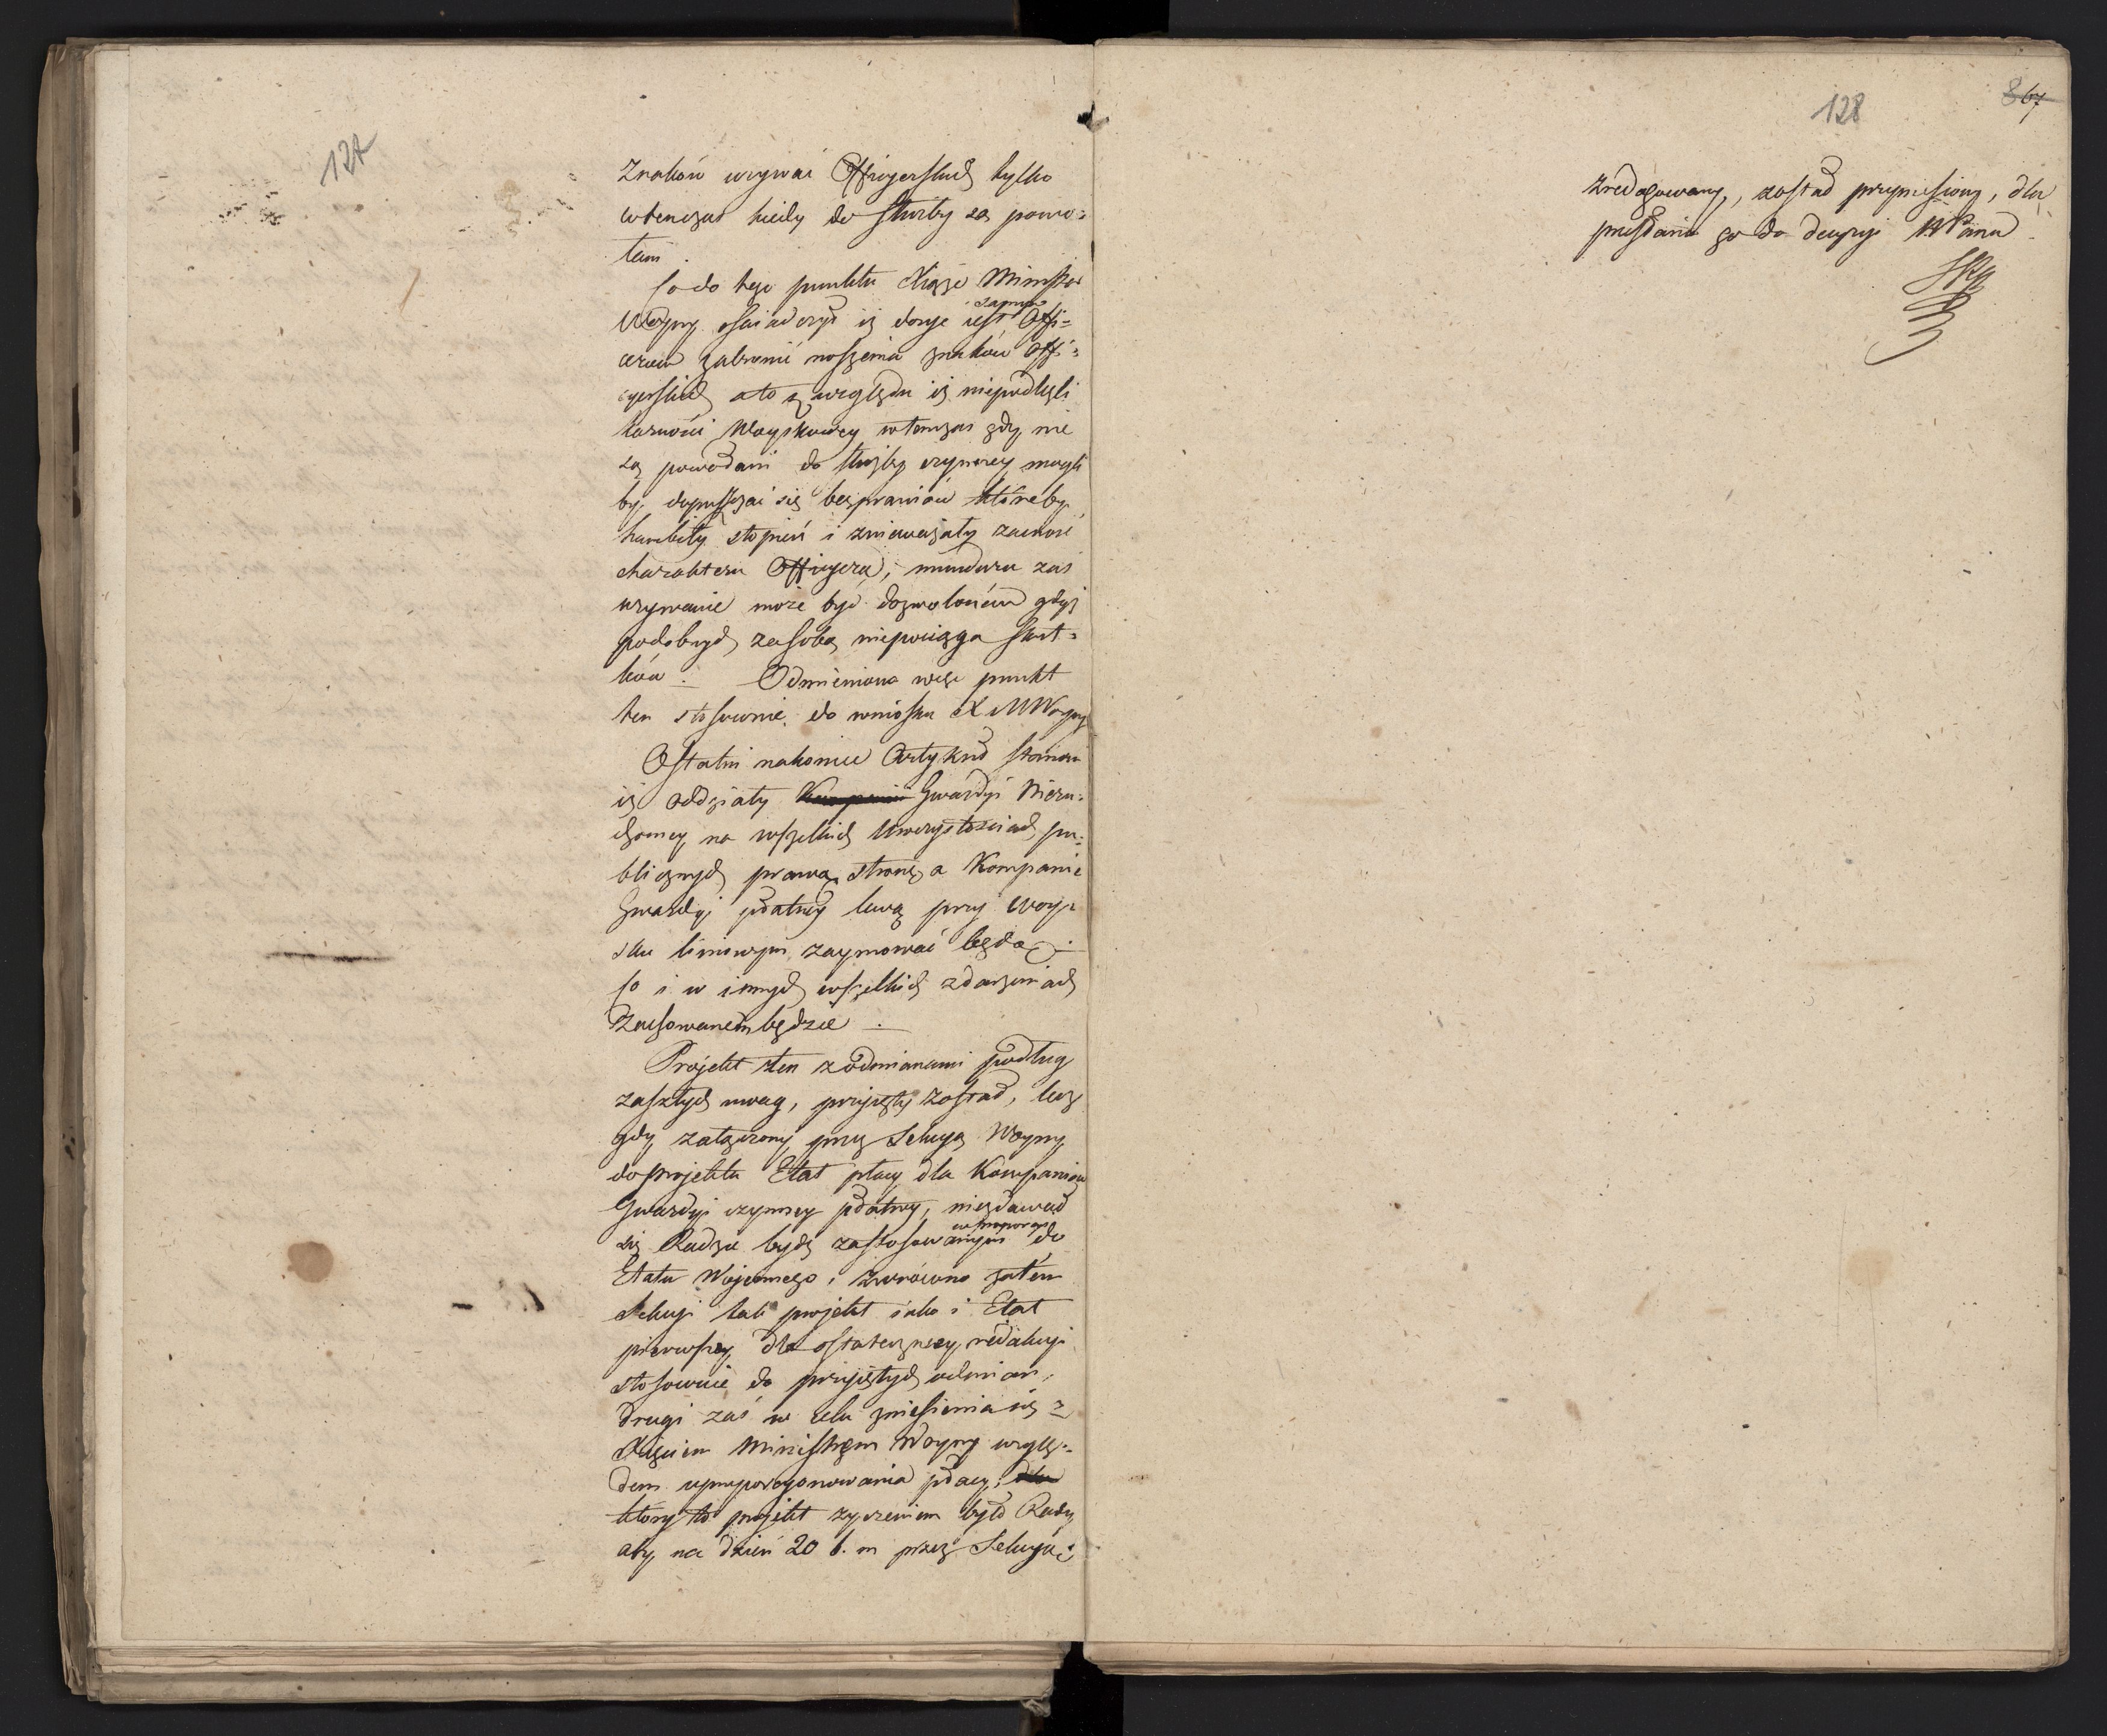 127
Znaków używać Officyerskich tylko
wtenczas kiedy do służby są powo=
łani.
Co do tego punktu Xiąże Minister
Woyny oświadczył iż
Offi=
cerom zabronić noszenia znaków Offi=
cyerskich a to z względu iż niepodlegli
karności Woyskowey wtenczas gdy nie
są powołani do służby czynney mogli
by dopuszczać się bezprawiów któreby
hańbiły stopień i znieważały zacność
charakteru Officyera; munduru zaś
używanie może być dozwoloném gdyż
podobnych za sobą niepociąga skut=
ków. Odmieniono więc punkt
ten stosownie do wniosku X MWoyny
Ostatni nakoniec Artykuł stanowi
iż oddziały Kompanii Gwardyi Nieru=
chomey na wszelkich Uroczystościach pu=
blicznych prawą stronę a Kompanie
Gwardyi płatney lewą przy woy=
sku liniowym zaymować będą.
Co i w innych wszelkich zdarzeniach
Zachowaném będzie.
Projekt ten z odmianami podług
zaszłych uwag, przyjęty został, lecz
gdy załączony przez Sekcyą Woyny
do projektu Etat płacy dla Kompaniów
Gwardyi czynney płatney, niezdawał
w proporcyi
się Radzie bydź zastosowanym do
Etatu Wojennego; zwrócono zatém
Sekcyi tak projekt iako i Etat
pierwszy dla ostateczney redakcyi
stosownie do przyjętych odmian,
drugi zaś w celu zniesienia się z
Xięciem Ministrem Woyny wzglę=
dem uproporcyonowania płacy; dla
który to projekt życzeniem było Rady
aby na dzień 20 b. m przez Sekcyą
128
867
zredagowany, został przyniesiony, dla
przesłania go do decyzyi